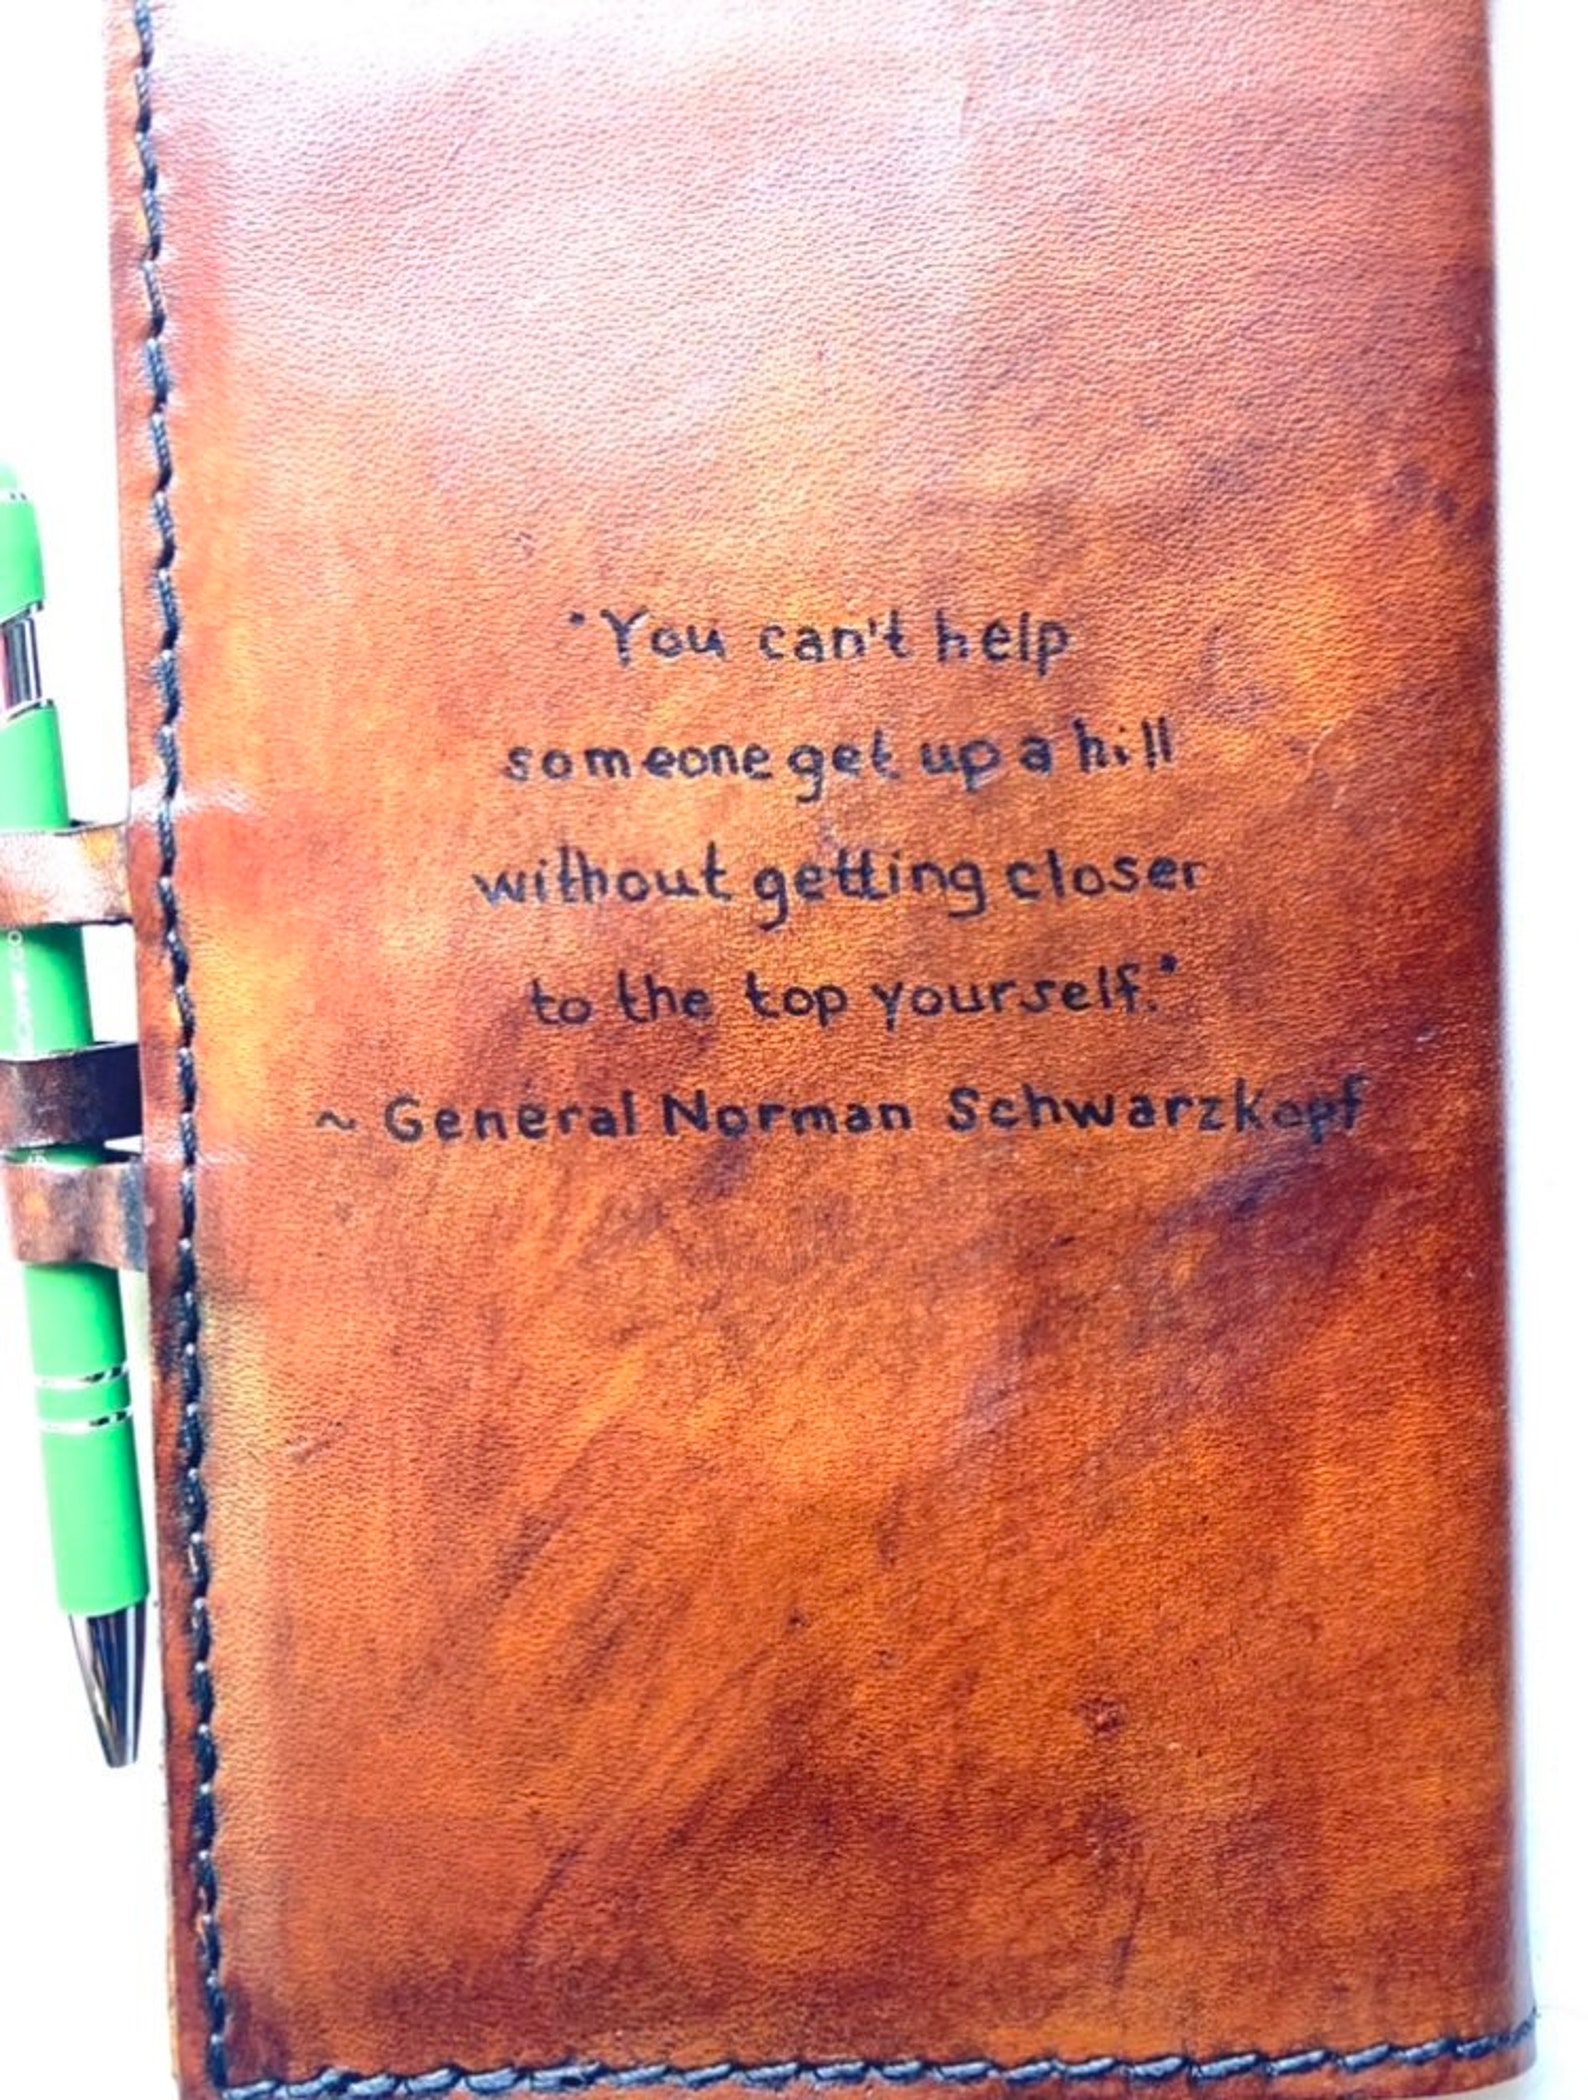 "You can't help
someone get up a hill
without getting closer
to the top yourself."
~ General Norman Schwarzkopf